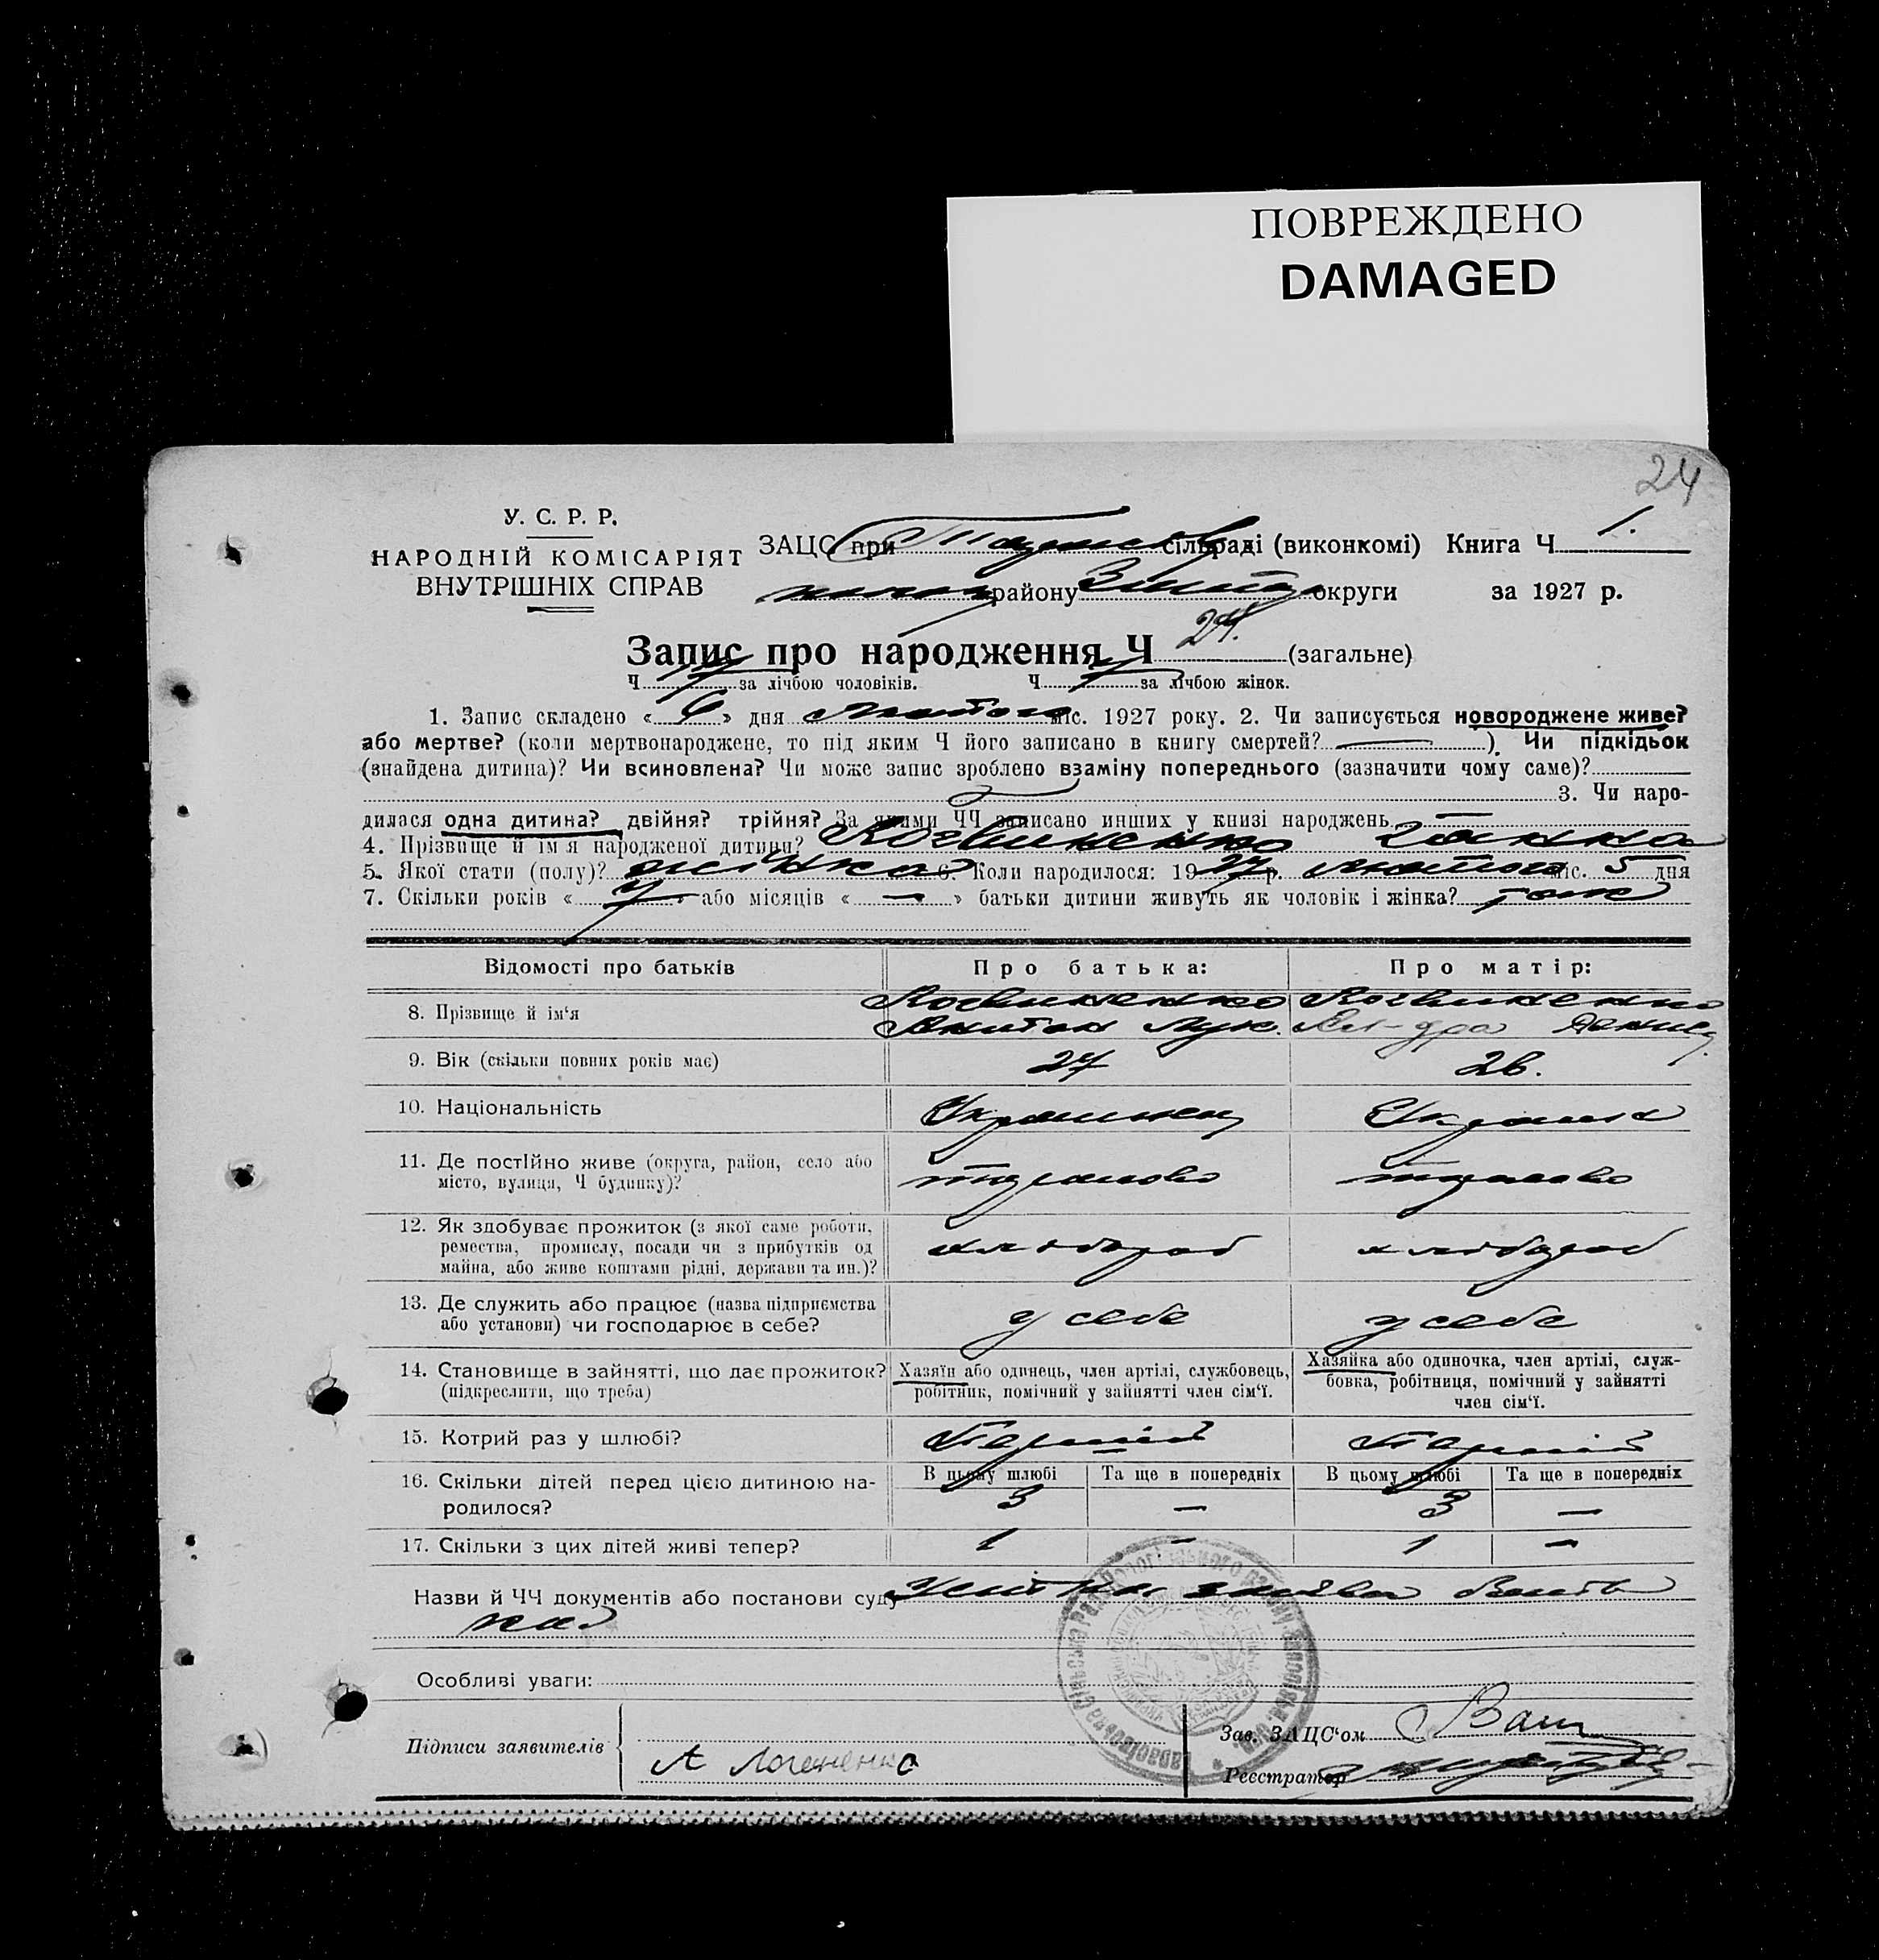 ПОВРЕЖДЕНО
DAMAGED
24
У. С. Р. Р.
НАРОДНІЙ КОМІСАРІЯТ
ВНУТРІШНІХ СПРАВ
ЗАЦС при сільраді (виконкомі) Книга Ч 1.
району округи за 1927 р.
Запис про народження Ч 24. (загальне)
Ч 17 за лічбою чоловіків. Ч 7 за лічбою жінок.
1. Запис складено « 6 » дня лютого міс. 1927 року. 2. Чи записується новороджене живе?
або мертве? (коли мертвонароджене, то під яким Ч його записано в книгу смертей? — ). Чи підкідьок
(знайдена дитина)? Чи всиновлена? Чи може запис зроблено взаміну попереднього (зазначити чому саме)?
3. Чи наро-
дилася одна дитина? двійня? трійня? За якими ЧЧ записано инших у книзі народжень
4. Прізвище й ім'я народженої дитини? Логвиненко Ганна
5. Якої стати (полу)? жінка 6. Коли народилося: 1927 р. лютого міс. 5 дня
7. Скільки років « 7 » або місяців « — » батьки дитини живуть як чоловік і жінка? так
Відомості про батьків Про батька: Про матір:
8. Прізвище й ім'я Логвиненко Логвиненко
9. Вік (скільки повних років має) 27 26.
10. Національність Українец Українка
11. Де постійно живе (округа, район, село або
місто, вулиця, Ч будинку)?
12. Як здобуває прожиток (з якої саме роботи,
ремества, промислу, посади чи з прибутків од
майна, або живе коштами рідні, держави та ин.)?
хлібороб хлібороб
13. Де служить або працює (назва підприємства
або установи) чи господарює в себе?
у себе у себе
14. Становище в зайнятті, що дає прожиток?
(підкреслити, що треба)
Хазяїн або одинець, член артілі, службовець,
робітник, помічний у зайнятті член сім'ї.
Хазяйка або одиночка, член артілі, служ-
бовка, робітниця, помічний у зайнятті
член сім'ї.
15. Котрий раз у шлюбі? Перший Перший
16. Скільки дітей перед цією дитиною на-
родилося?
В цьому шлюбі Та ще в попередніх В цьому шлюбі Та ще в попередніх
3 — 3 —
17. Скільки з цих дітей живі тепер? 1 — 1 —
Назви й ЧЧ документів або постанови суду
Особливі уваги:
Підписи заявителів
Зав. ЗАЦС'ом
Реєстратор